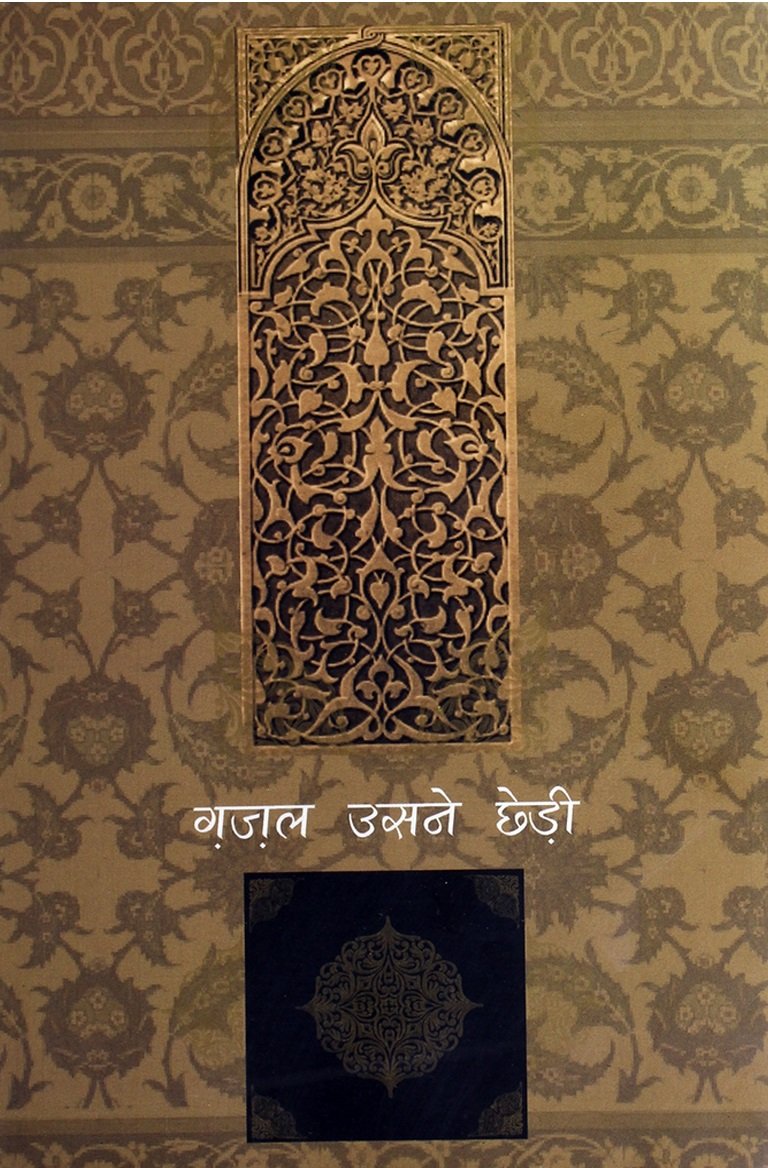 ग़ज़ल उसने छेड़ी